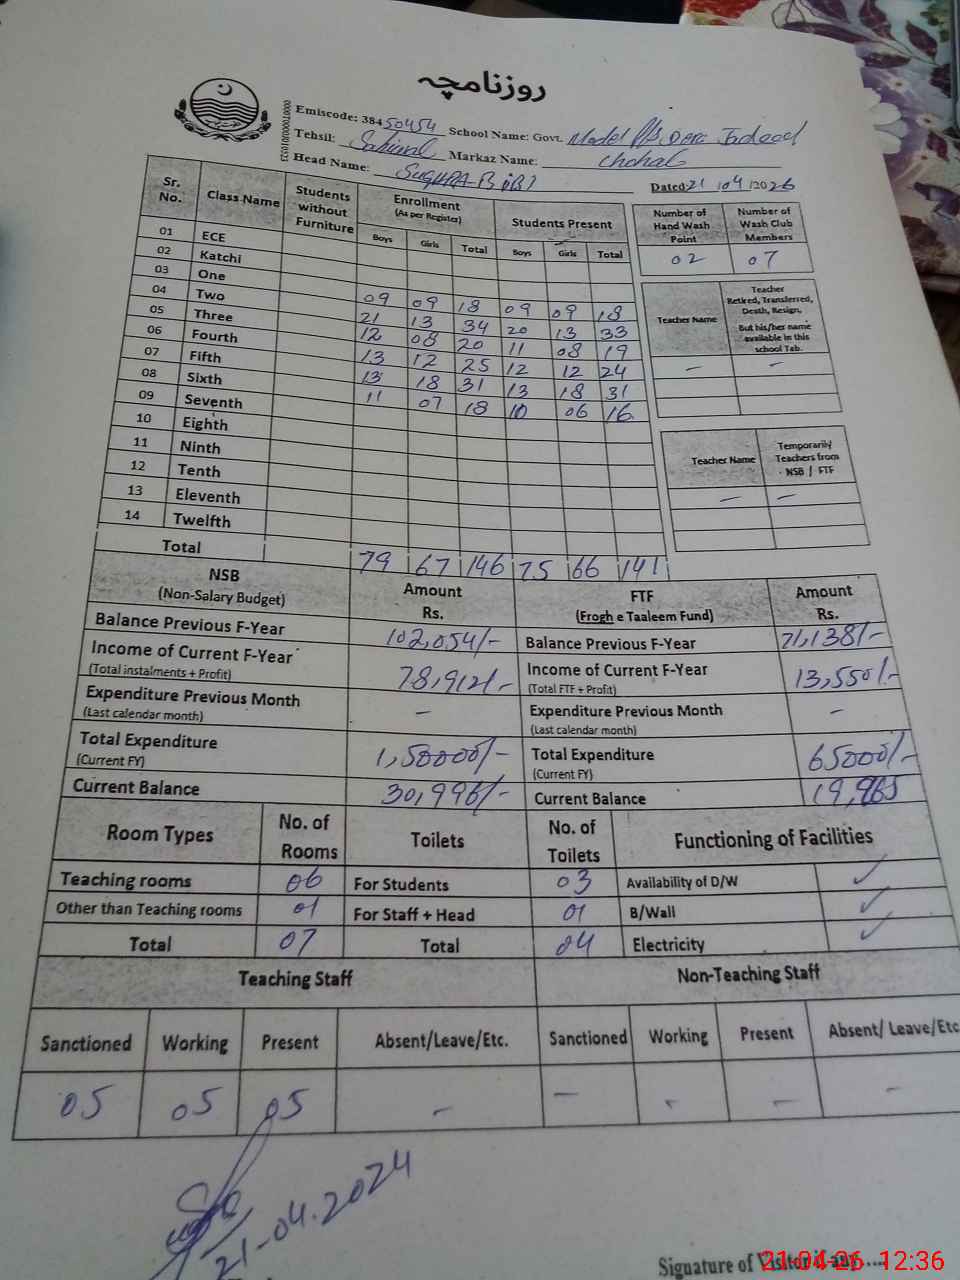 روزنامچہ
Emiscode: 38450454 School Name: Govt. Model P/S Dera Jadeed
Tehsil: Sahiwal Markaz Name: Chohal
Head Name: SUGHRA BiBi Dated 21/04/2026
Sr. No. Class Name Students without Furniture Enrollment (As per Register) Students Present
Boys Girls Total Boys Girls Total
01 ECE
02 Katchi
03 One
04 Two 09 09 18 09 09 18
05 Three 21 13 34 20 13 33
06 Fourth 12 08 20 11 08 19
07 Fifth 13 12 25 12 12 24
08 Sixth 13 18 31 13 18 31
09 Seventh 11 07 18 10 06 16
10 Eighth
11 Ninth
12 Tenth
13 Eleventh
14 Twelfth
Total 79 67 146 75 66 141
Number of Hand Wash Point Number of Wash Club Members
02 07
Teacher Name Teacher Retired, Transferred, Death, Resign, But his/her name available in this school Tab.
– –
Teacher Name Temporarily Teachers from NSB / FTF
– –
NSB (Non-Salary Budget) Amount Rs. FTF (Frogh e Taaleem Fund) Amount Rs.
Balance Previous F-Year 102,054/- Balance Previous F-Year 71,138/-
Income of Current F-Year 78,912/- Income of Current F-Year 13,550/-
(Total instalments + Profit) (Total FTF + Profit)
Expenditure Previous Month – Expenditure Previous Month –
(Last calendar month) (Last calendar month)
Total Expenditure 1,50000/- Total Expenditure 65000/-
(Current FY) (Current FY)
Current Balance 30,996/- Current Balance 19,965
Room Types No. of Rooms Toilets No. of Toilets Functioning of Facilities
Teaching rooms 06 For Students 03 Availability of D/W ✓
Other than Teaching rooms 01 For Staff + Head 01 B/Wall ✓
Total 07 Total 04 Electricity ✓
Teaching Staff Non-Teaching Staff
Sanctioned Working Present Absent/Leave/Etc. Sanctioned Working Present Absent/ Leave/Etc
05 05 05 – – – – –
21-04.2024
Signature of Visitor
21-04-26 12:36